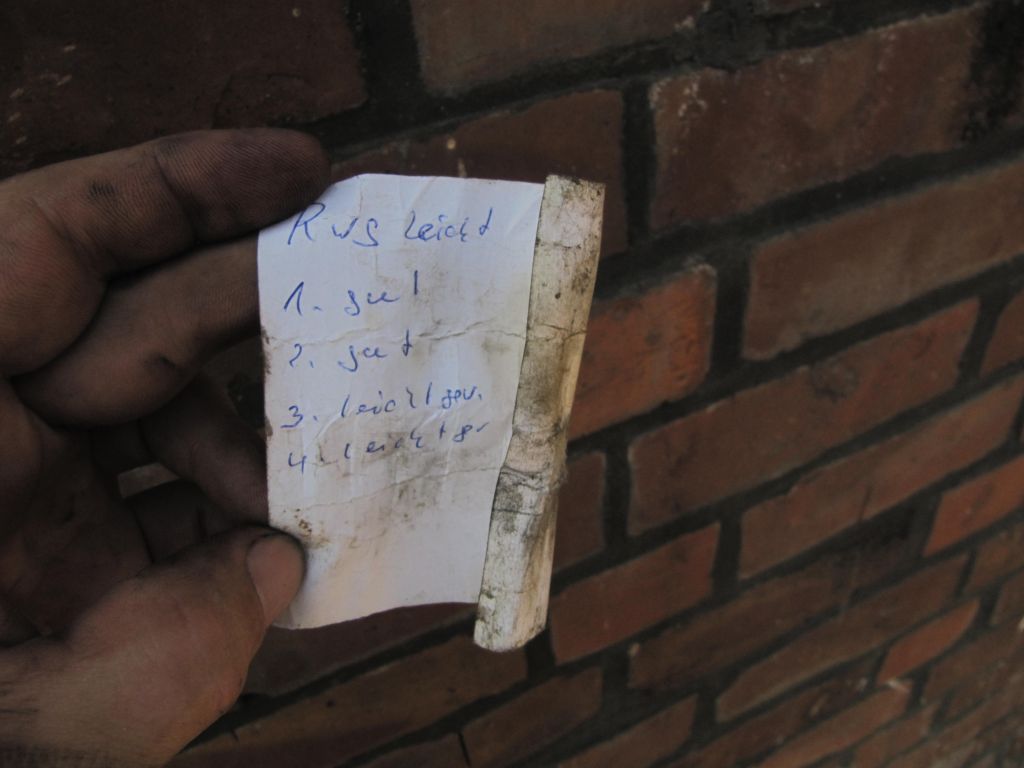 RWS leicht
1. gut
2. gut
3. leicht gev.
4. leicht gr